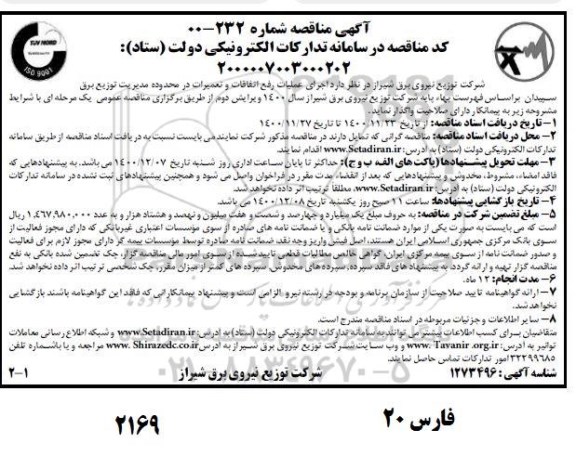 آگهی مناقصه شماره ۲۳۲-۰۰
کد مناقصه در سامانه تدارکات الکترونیکی دولت (ستاد):
۲۰۰۰۰۰۷۰۰۳۰۰۰۲۰۲
TUV NORD
ISO 9001
شرکت توزیع نیروی برق شیراز در نظر دارد اجرای عملیات رفع اتفاقات و تعمیرات در محدوده مدیریت توزیع برق
سپیدان براساس فهرست بهاء پایه شرکت توزیع نیروی برق شیراز سال ۱۴۰۰ و ویرایش دوم از طریق برگزاری مناقصه عمومی یک مرحله ای با شرایط
مشروحه زیر به پیمانکار دارای صلاحیت واگذار نماید.
۱- تاریخ دریافت اسناد مناقصه: از تاریخ ۱۴۰۰/۱۱/۲۳ تا تاریخ ۱۴۰۰/۱۱/۲۷
۲- محل دریافت اسناد مناقصه: مناقصه گرانی که تمایل دارند در مناقصه مذکور شرکت نمایند می بایست نسبت به دریافت اسناد مناقصه از طریق سامانه
تدارکات الکترونیکی دولت (ستاد) به آدرس: www.Setadiran.ir اقدام نمایند.
۳- مهلت تحویل پیشنهادها (پاکت های الف و ب و ج): حداکثر تا پایان ساعت اداری روز شنبه تاریخ ۱۴۰۰/۱۲/۰۷ می باشد. به پیشنهادهایی که
فاقد امضاء، مشروط، مخدوش و پیشنهادهایی که بعد از انقضاء مدت مقرر در فراخوان واصل می شود و همچنین پیشنهادهای ثبت نشده در سامانه تدارکات
الکترونیکی دولت (ستاد) به آدرس www.Setadiran.ir، مطلقاً ترتیب اثر داده نخواهد شد.
۴- تاریخ بازگشایی پیشنهادها: ساعت ۱۱ صبح روز یکشنبه تاریخ ۱۴۰۰/۱۲/۰۸ می باشد.
۵- مبلغ تضمین شرکت در مناقصه: به حروف مبلغ یک میلیارد و چهارصد و شصت و هفت میلیون و نهصد و هشتاد هزار و به عدد ۱.۴۶۷.۹۸۰.۰۰۰ ریال
است که می بایست به صورت یکی از موارد ضمانت نامه بانکی یا ضمانت نامه های صادره از سوی مؤسسات اعتباری غیربانکی که دارای مجوز فعالیت از
سوی بانک مرکزی جمهوری اسلامی ایران هستند، اصل فیش واریز وجه نقد، ضمانت نامه صادره توسط مؤسسات بیمه گر دارای مجوز لازم برای فعالیت
و صدور ضمانت نامه از سوی بیمه مرکزی ایران، گواهی خالص مطالبات قطعی تایید شده از سوی امور مالی مناقصه گزار، چک تضمین شده بانکی به نفع
مناقصه گزار تهیه و ارائه گردد. به پیشنهاد های فاقد سپرده، سپرده های مخدوش، سپرده های کمتر از میزان مقرر، چک شخصی ترتیب اثر داده نخواهد شد.
۶- مدت انجام: ۱۲ ماه.
۷- ارائه گواهینامه تایید صلاحیت از سازمان برنامه و بودجه در رشته نیرو الزامی است و پیشنهاد پیمانکارانی که فاقد این گواهینامه باشند بازگشایی
نخواهد شد.
۸- سایر اطلاعات و جزئیات مربوطه در اسناد مناقصه مندرج است.
متقاضیان برای کسب اطلاعات بیشتر می توانند به سامانه تدارکات الکترونیکی دولت (ستاد) به آدرس: www.Setadiran.ir و شبکه اطلاع رسانی معاملات
توانیر به آدرس: www.Tavanir.org.ir و وب سایت شرکت توزیع نیروی برق شیراز به آدرس www.Shirazedc.co.ir مراجعه و یا با شماره تلفن
۳۲۲۹۹۶۸۵ امور تدارکات تماس حاصل نمایند.
شناسه آگهی: ۱۲۷۳۴۹۶
شرکت توزیع نیروی برق شیراز
۲-۱
۰۲۱-۸۸۳۴۹۶۷۰-۵
فارس ۲۰
۲۱۶۹